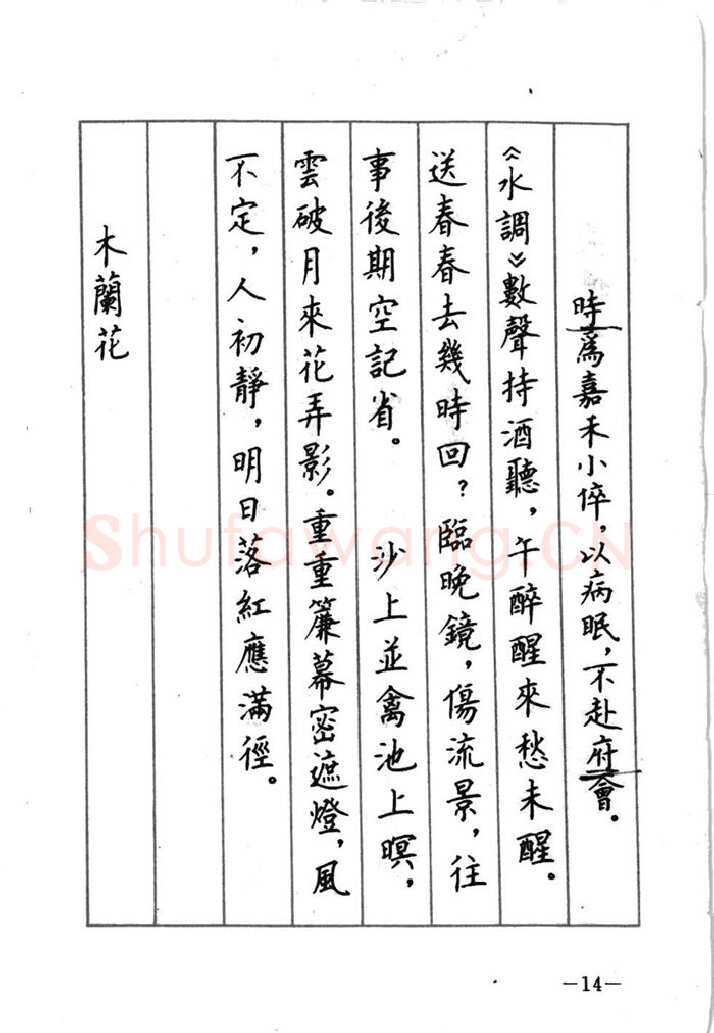 時爲嘉禾小倅，以病眠，不赴府會。
《水調》數聲持酒聽，午醉醒來愁未醒。
送春春去幾時回？臨晚鏡，傷流景，往
事後期空記省。　沙上並禽池上暝，
雲破月來花弄影。重重簾幕密遮燈，風
不定，人初靜，明日落紅應滿徑。
木蘭花
Shufawang.CN
—14—